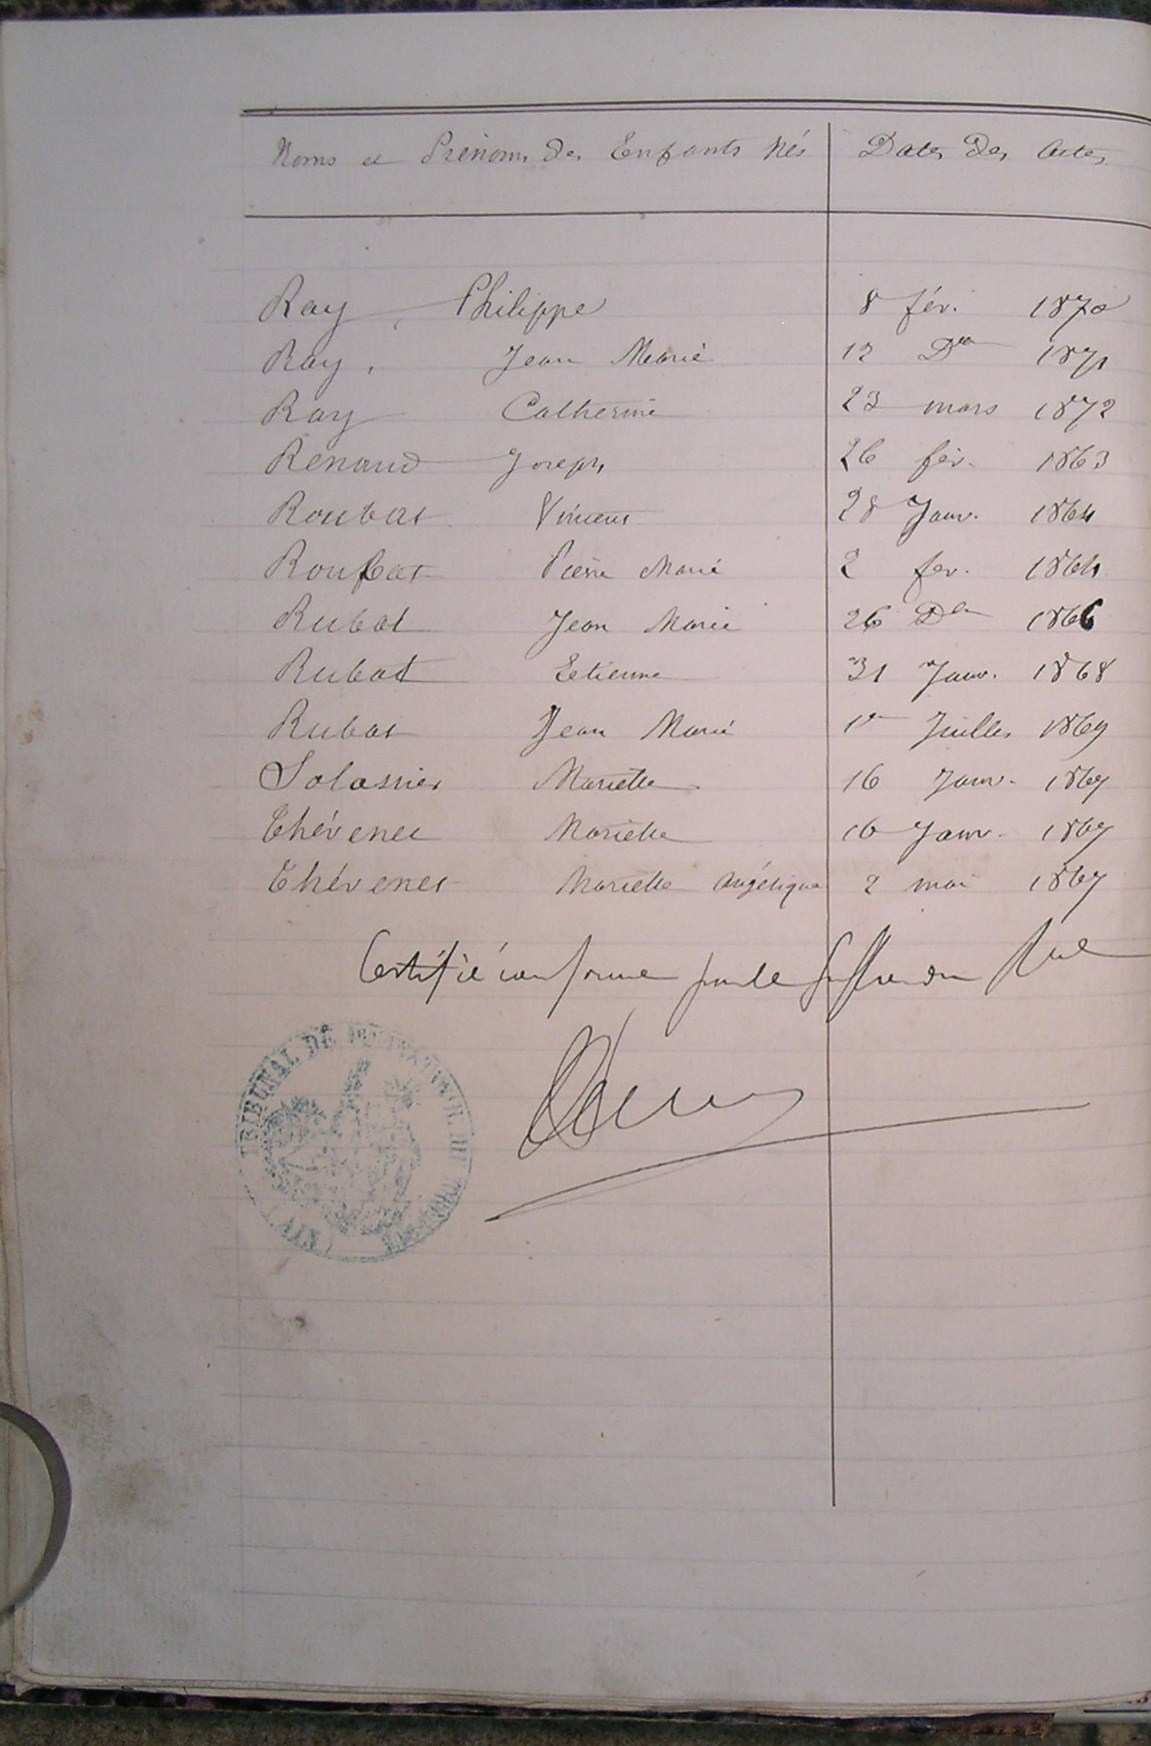 Noms et Prénoms des Enfants Nés Dates des Actes
Ray Philippe 8 fév. 1870
Ray, Jean Marie 12 Dre 1871
Ray Catherine 23 mars 1872
Renaud Joseph 26 fév. 1863
Roubat Vincent 28 Janv. 1864
Roubat Pierre Marie 2 fev. 1864
Rubat Jean Marie 26 Dre 1866
Rubat Etienne 31 Janv. 1868
Rubat Jean Marie 1er Juillet 1869
Solasnier Mariette 16 Janv. 1867
Thévenet Mariette 16 Janv. 1867
Thévenet Mariette Angélique 2 mai 1867
Certifié conforme par le
TRIBUNAL DE
(AIN)